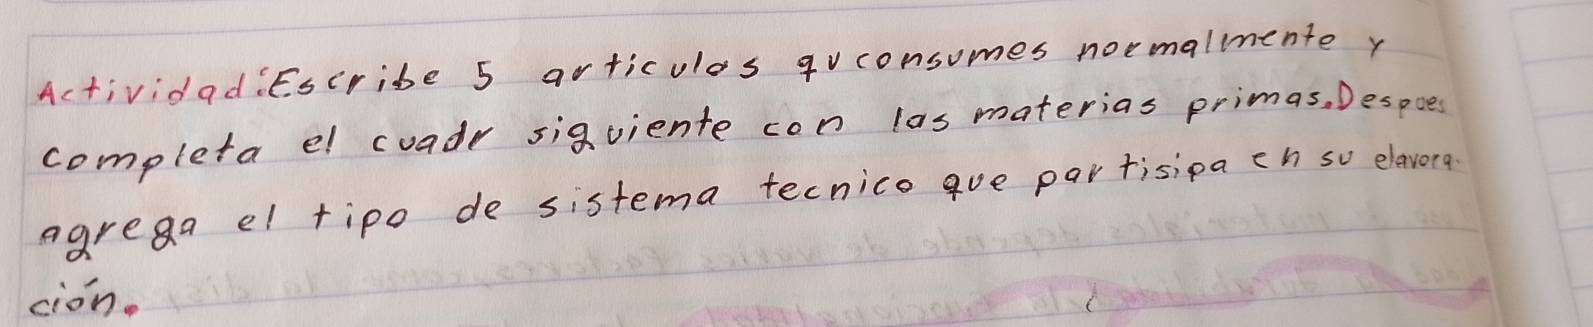 Actividad: Escribe 5 articulos qu consumes normalmente y
completa el cuadr siguiente con las materias primas. Despues
agrega el tipo de sistema tecnico que partisipa en su elavora
ción.